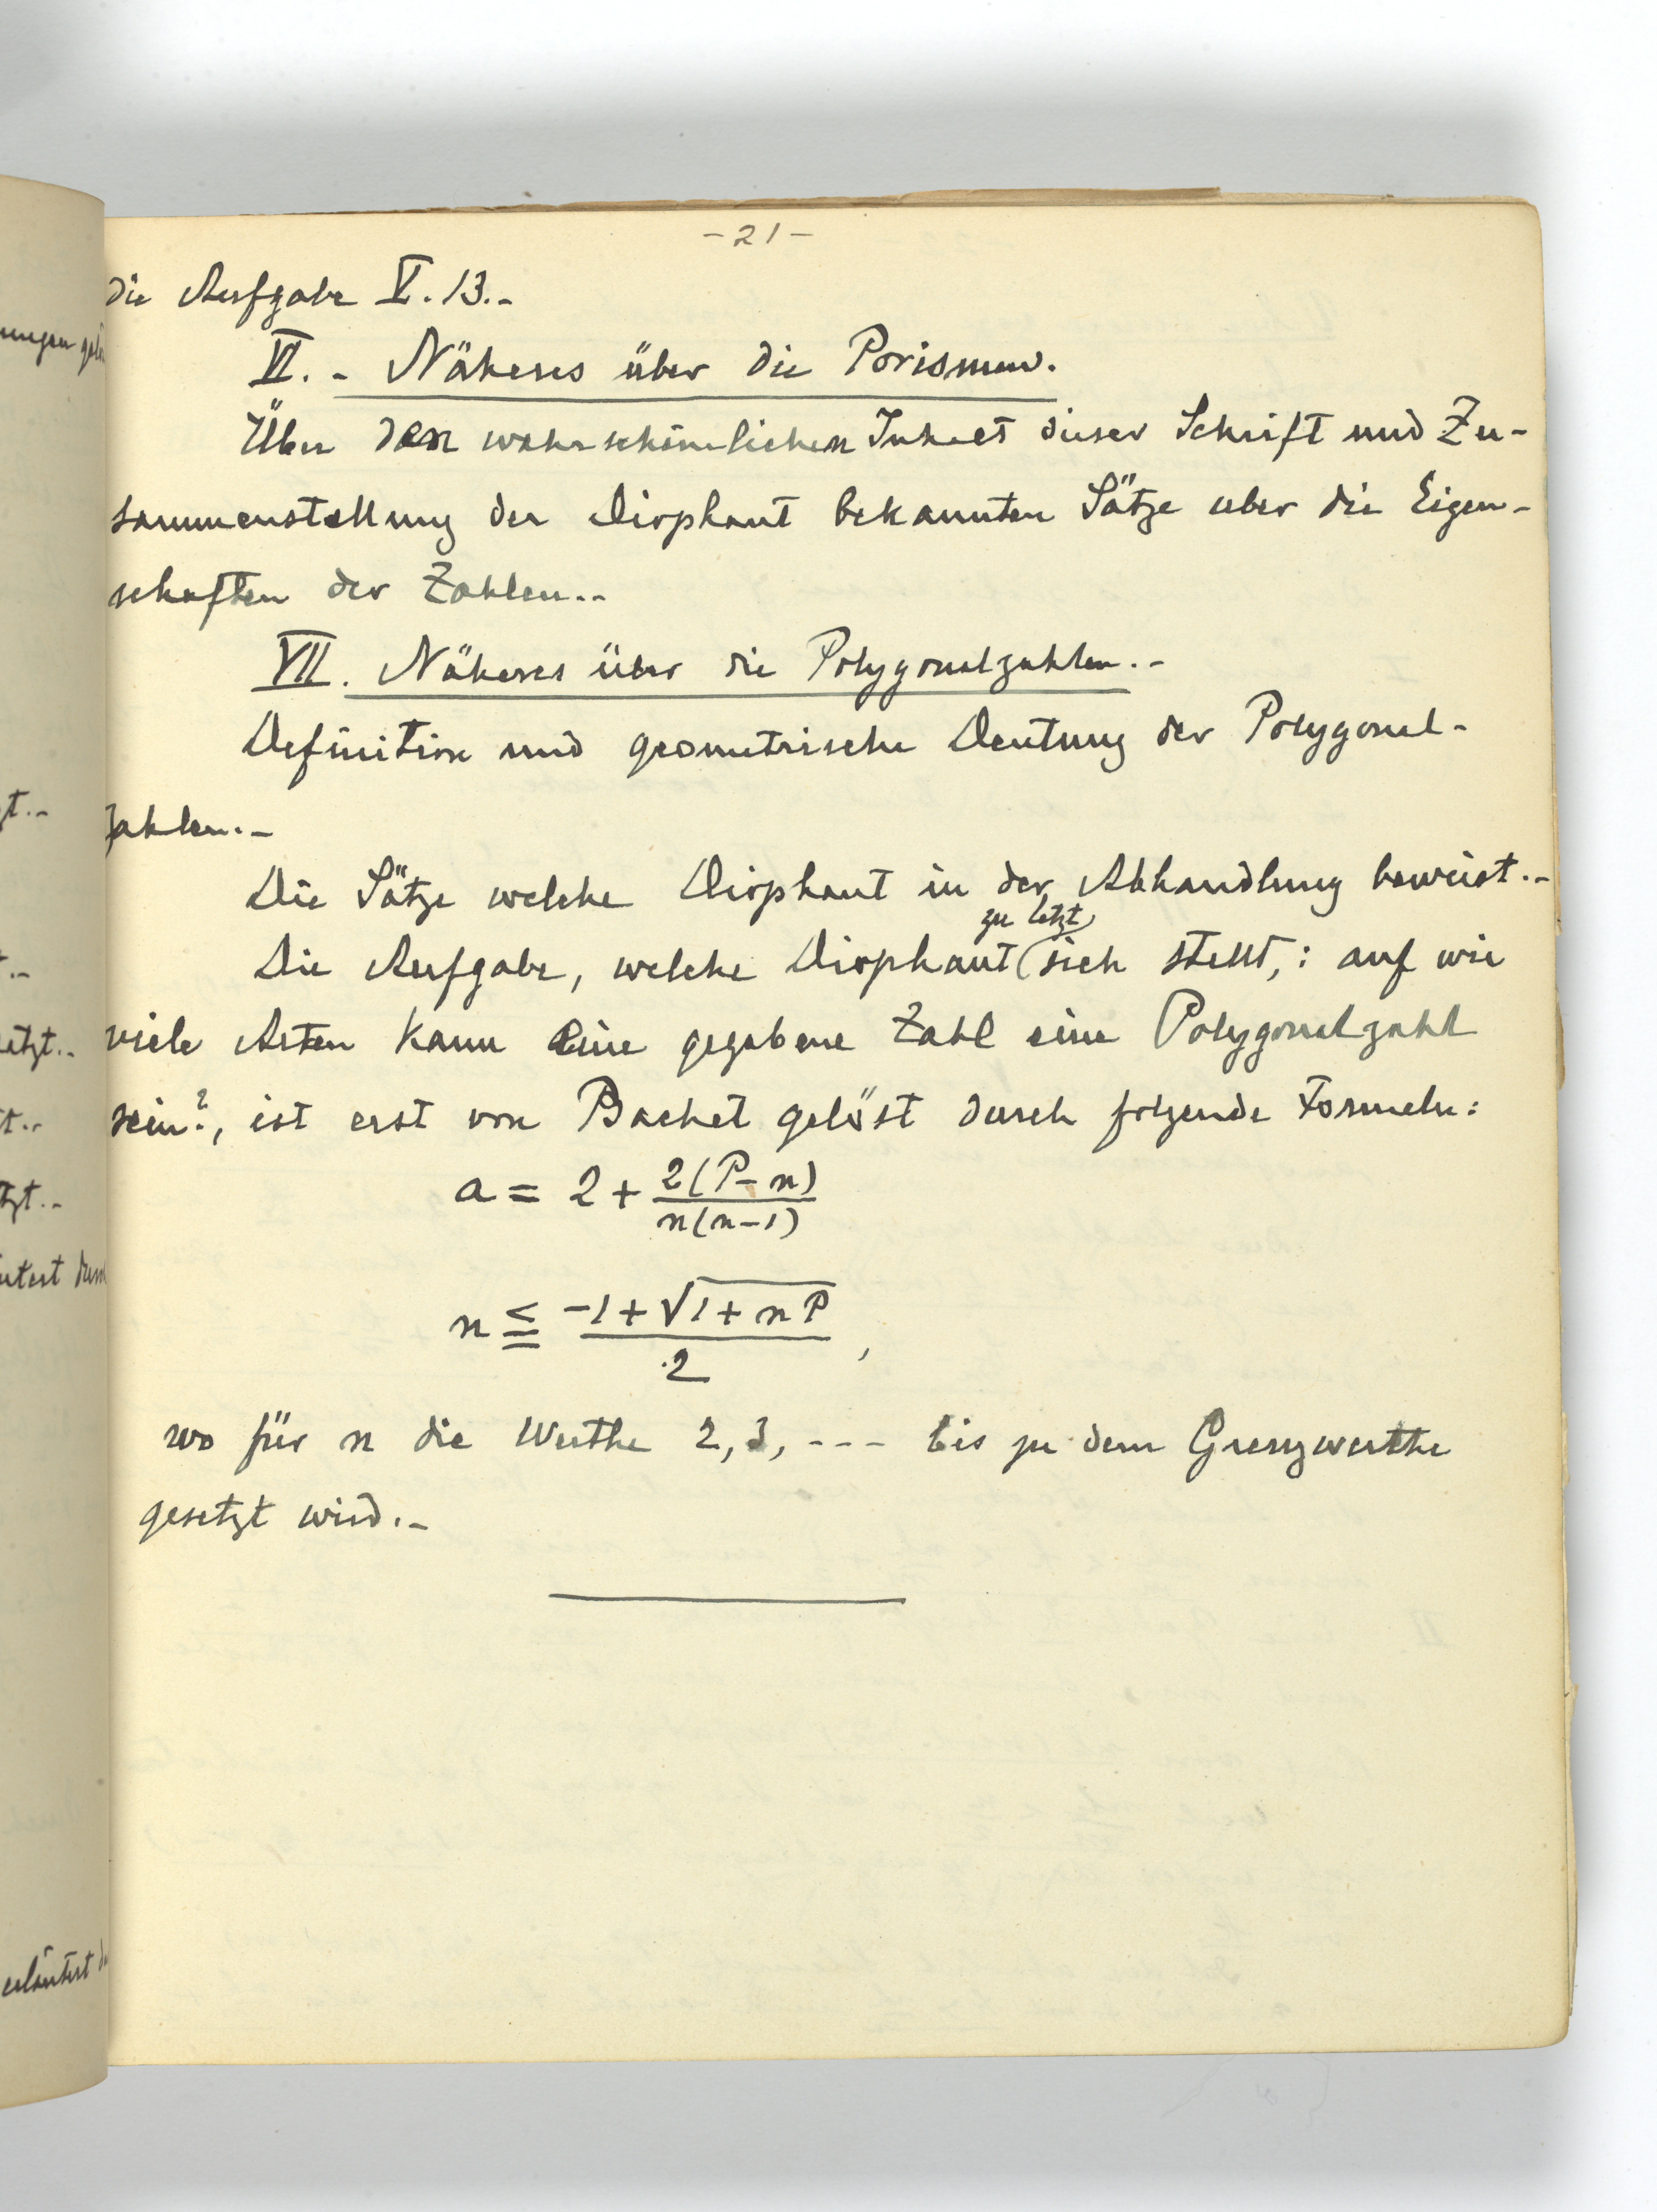 -21-
die Aufgabe V. 13.-
VI. - Näheres über die Porismen.
Über den wahrscheinlichen Inhalt dieser Schrift und Zu-
sammenstellung der Diophant bekannten Sätze über die Eigen-
schaften der Zahlen..-
VII. Näheres über die Polygonalzahlen.-
Definition und geometrische Deutung der Polygonal-
zahlen.-
Die Sätze welche Diophant in der Abhandlung beweist.-
zu letzt
Die Aufgabe, welche Diophant (sich stellt,: auf wie
viele Arten kann eine gegebene Zahl eine Polygonalzahl
sein?, ist erst von Bachet gelöst durch folgende Formeln:
a = 2 + 2(P-n)
n(n-1)
n ≦ -1+√1+nP
2 ,
wo für n die Werthe 2, 3, --- bis zu dem Grenzwerthe
gesetzt wird.-
ungen
gt.-
etzt.-
t.-
tzt.-
erläutert